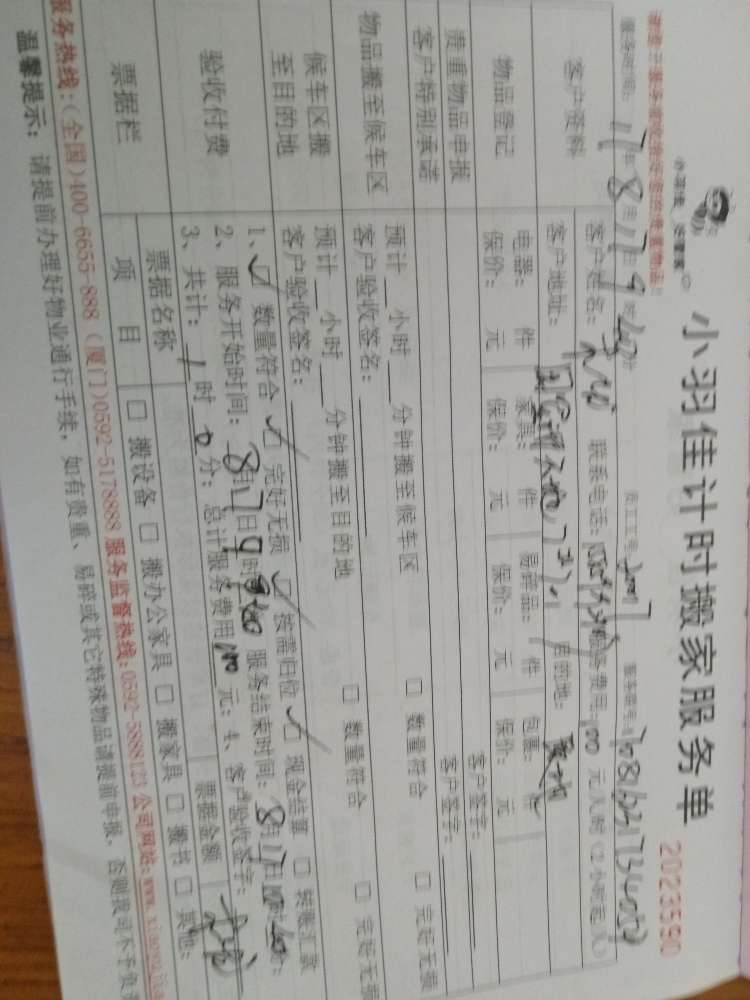 小羽佳计时搬家服务单 2023590
小羽佳
服务时间: 17年 8月17日9时40分 员工工号: 服务单号:
客户资料 客户姓名: 联系电话: 服务费用:100元/小时(2小时起)
客户地址: 目的地:
物品登记 电器: 件 家具: 件 易碎品: 件 包裹: 件
保价: 元 保价: 元 保价: 元 保价: 元
贵重物品申报 客户签字:
客户特别承诺 客户签字:
物品搬至候车区 预计 小时 分钟搬至候车区 □ 数量符合 □ 完好无损
客户验收签名:
候车区搬至目的地 预计 小时 分钟搬至目的地 □ 数量符合 □ 完好无损
客户验收签名:
验收付费 1、☑ 数量符合 ☑ 完好无损 ☑ 按需归位 ☑ 现金结算 □ 转账汇款
2、服务开始时间: 8月17日9时40 服务结束时间: 8月17日10时40分;
3、共计: 1时0分; 总计服务费用100元; 4、客户验收签字:
票据栏 票据名称 票据金额
项目 □ 搬设备 □ 搬办公家具 □ 搬家具 □ 搬书 □ 其他:
服务热线:(全国)400-6655-888 (厦门)0592-5178888 服务监督热线:0592-5888123 公司网站:www.xiaoyujia
温馨提示: 请提前办理好物业通行手续,如有贵重、易碎或其它特殊物品请提前申报,否则我司不予负